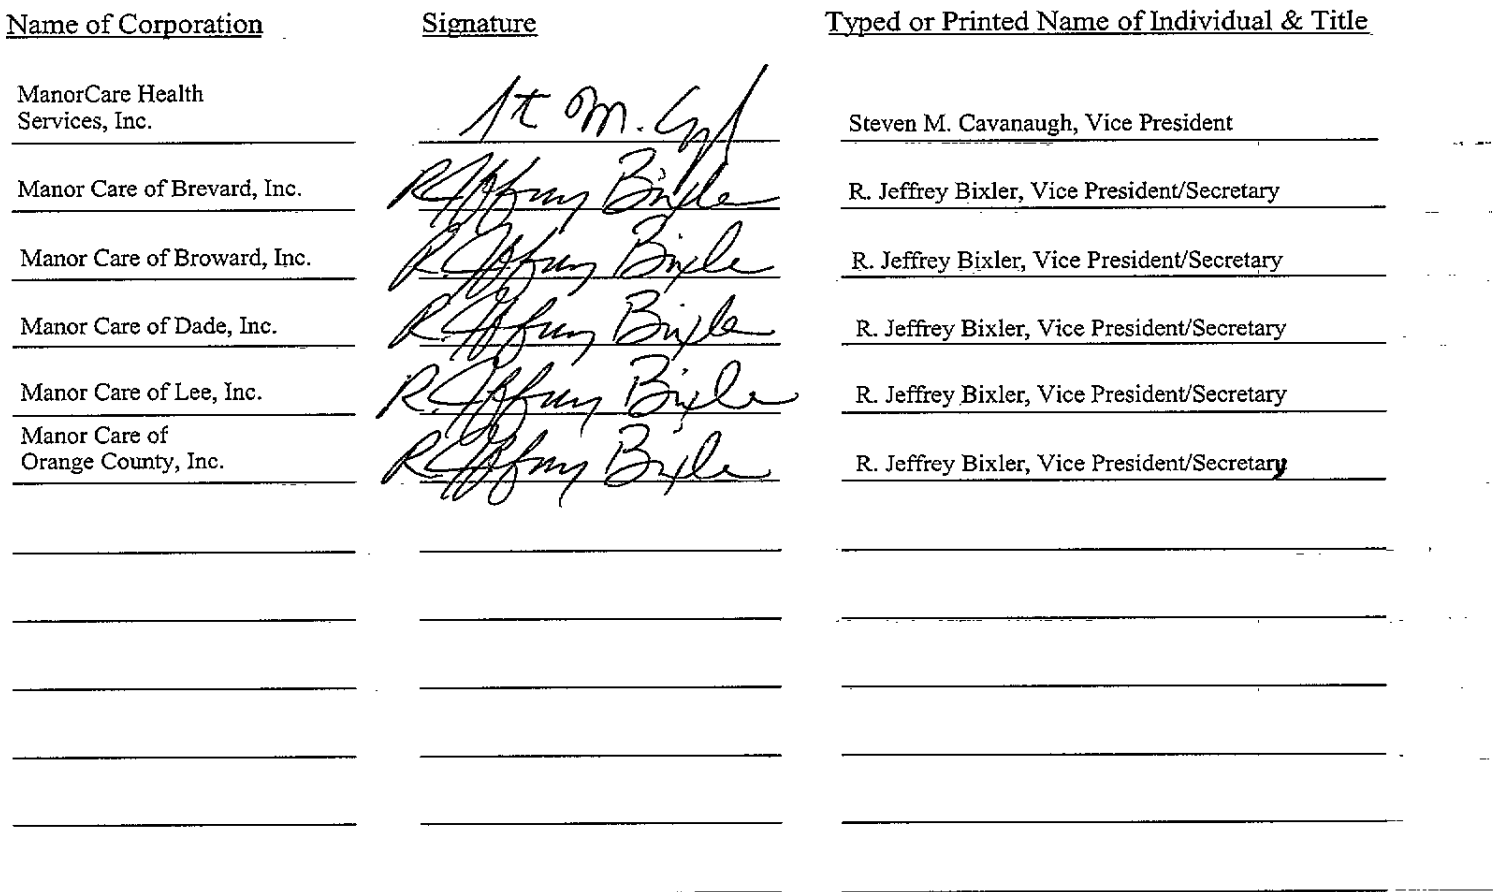 Name of Corporation Signature Typed or Printed Name of Individual & Title
ManorCare Health
Services, Inc. Steven M. Cavanaugh, Vice President
Manor Care of Brevard, Inc. R. Jeffrey Bixler R. Jeffrey Bixler, Vice President/Secretary
Manor Care of Broward, Inc. R. Jeffrey Bixler R. Jeffrey Bixler, Vice President/Secretary
Manor Care of Dade, Inc. R. Jeffrey Bixler R. Jeffrey Bixler, Vice President/Secretary
Manor Care of Lee, Inc. R. Jeffrey Bixler R. Jeffrey Bixler, Vice President/Secretary
Manor Care of
Orange County, Inc. R. Jeffrey Bixler R. Jeffrey Bixler, Vice President/Secretary